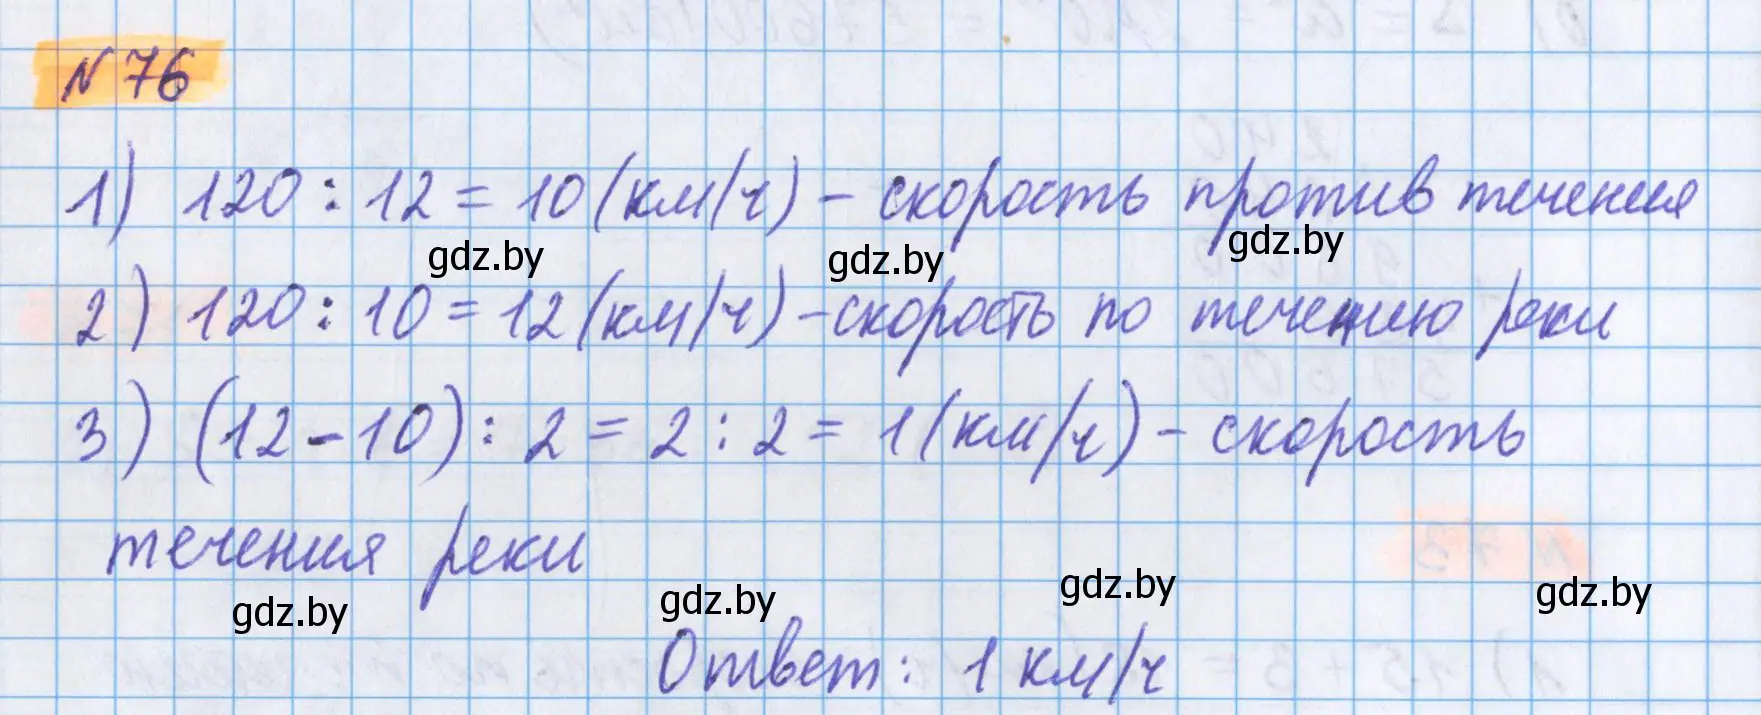 N 76
1) 120 : 12 = 10 (км/ч) - скорость против течения
gdz.by gdz.by gdz.by
2) 120 : 10 = 12 (км/ч) - скорость по течению реки
3) (12 - 10) : 2 = 2 : 2 = 1 (км/ч) - скорость
течения реки
gdz.by gdz.by gdz.by gdz.by
Ответ: 1 км/ч